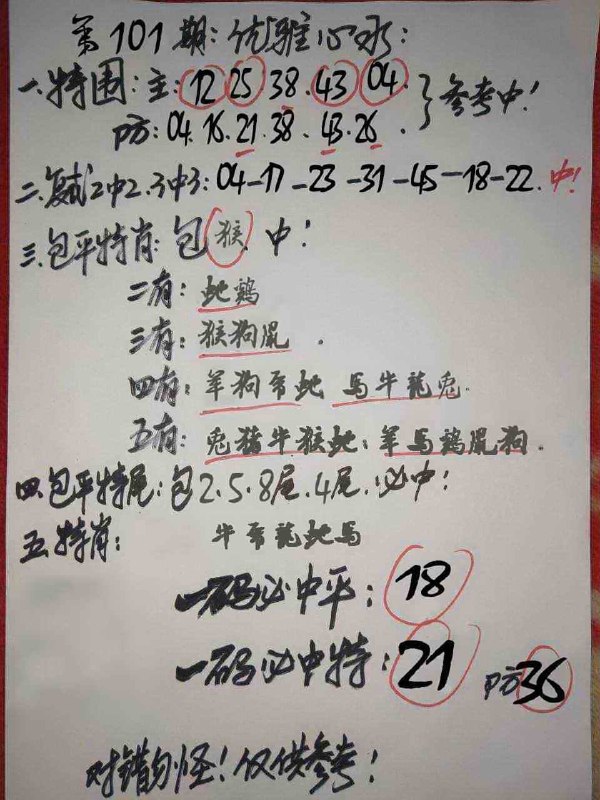 第101期:优雅心水:
一.特围:主:12 25 38.43 04.
防:04.16.21.38.43.26. }参考中!
二.复试2中2.3中3:04-17-23-31-45-18-22.中!
三.包平特肖:包猴.中!
二有:蛇鸡
三有:猴狗鼠.
四有:羊狗虎蛇 馬牛龍兔.
五有:兔猪牛猴蛇:羊馬鸡鼠狗.
四.包平特尾:包2.5.8尾.4尾.必中!
五.特肖: 牛虎龍蛇馬
一码必中平:18
一码必中特:21 防36
对错勿怪!仅供参考!